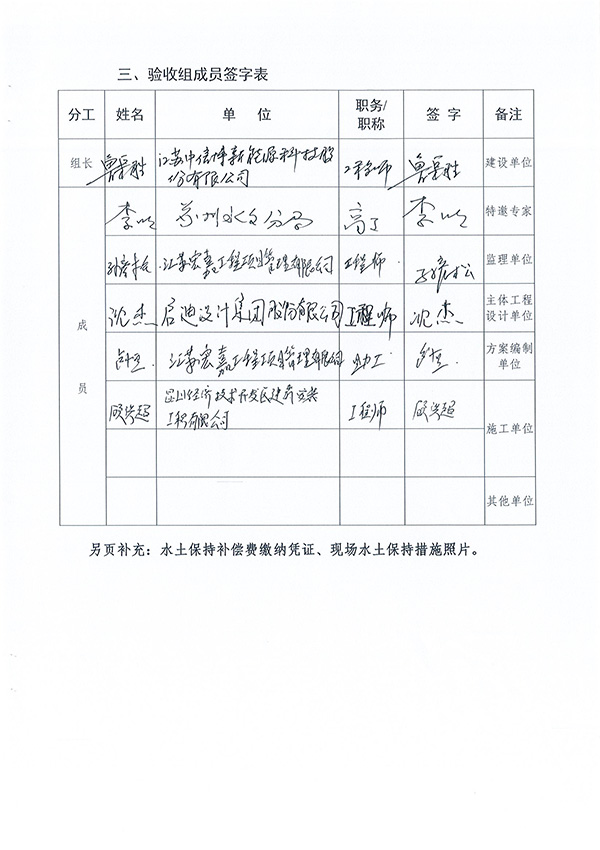 三、验收组成员签字表
分工 姓名 单 位 职务/职称 签 字 备注
组长 江苏中信博新能源科技股份有限公司 工程师 建设单位
成员
李 苏州水文分局 高工 李 特邀专家
江苏宏嘉工程项目管理有限公司 工程师 监理单位
沈杰 启迪设计集团股份有限公司 工程师 沈杰 主体工程设计单位
江苏宏嘉工程项目管理有限公司 助工 方案编制单位
昆山经济技术开发区建筑安装工程有限公司 工程师 施工单位
其他单位
另页补充：水土保持补偿费缴纳凭证、现场水土保持措施照片。